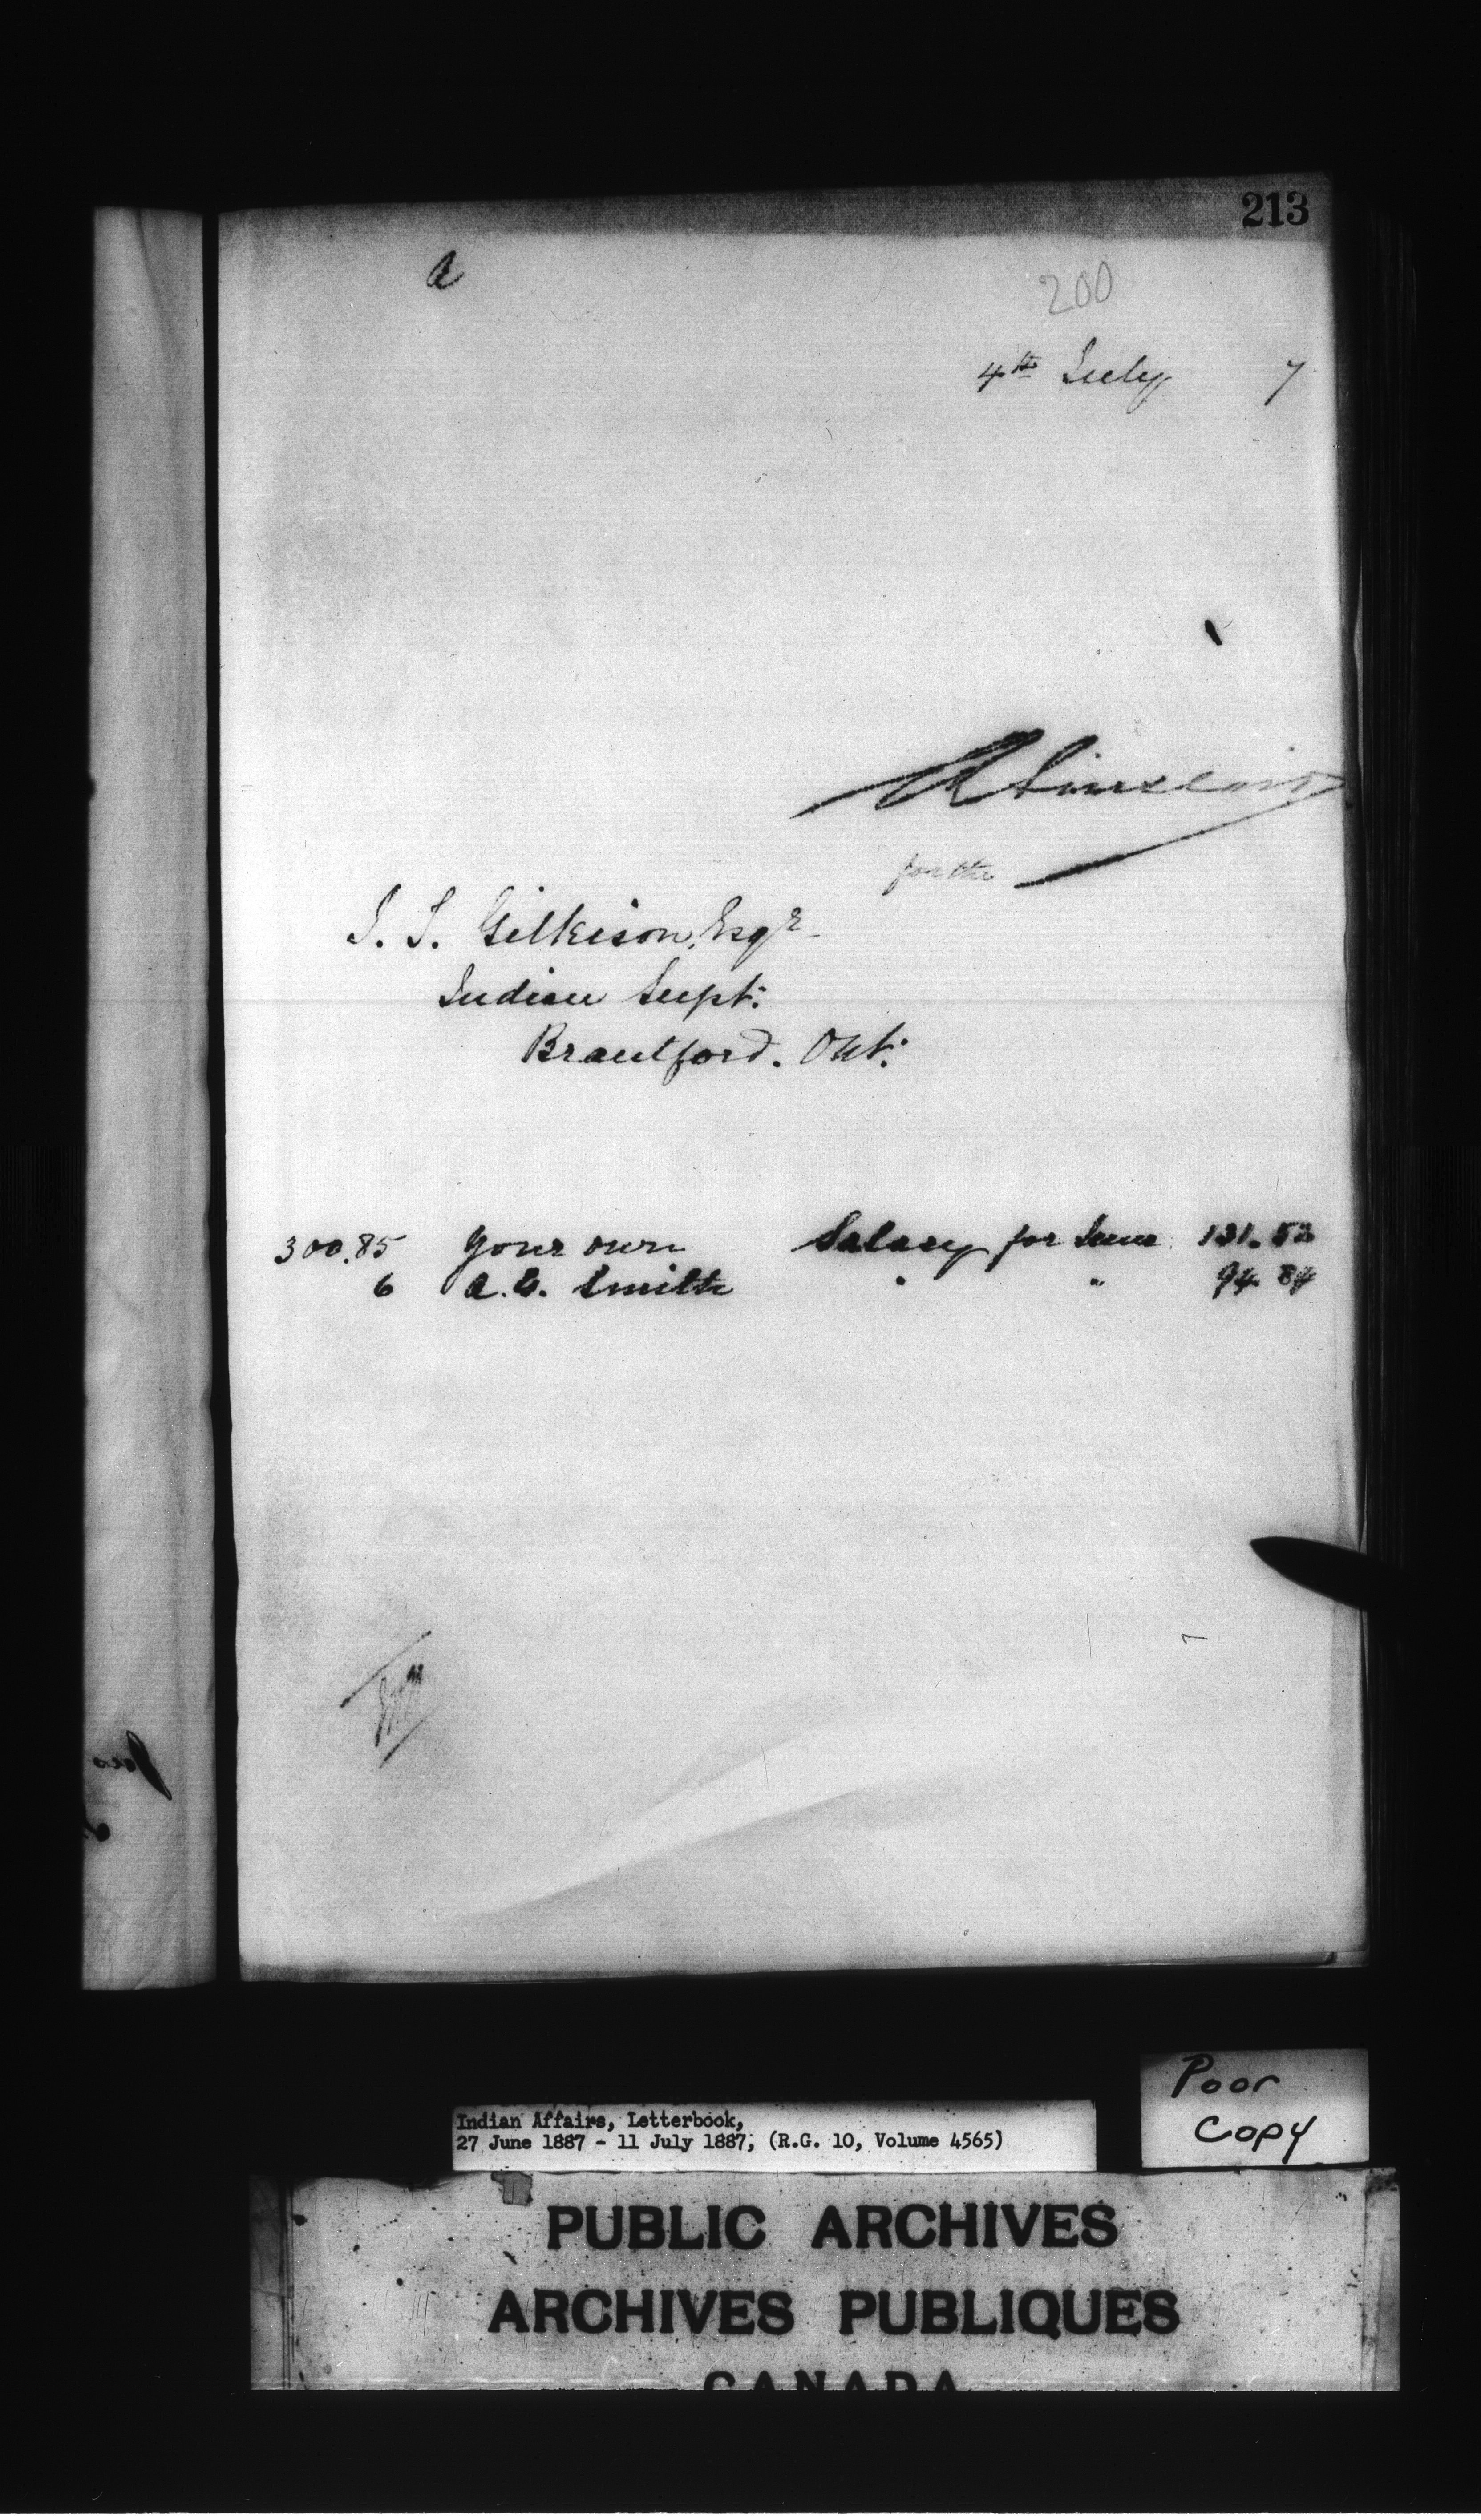 213
a
200
4th July 7
R Sinclair
for the
J. T. Gilkison, Esqr
Indian Supt:
Brantford. Ont:
300.85 Your own Salary for June 131.52
6 A. G. Smith " " 94 84
Indian Affairs, Letterbook,
27 June 1887 - 11 July 1887, (R.G. 10, Volume 4565)
Poor
Copy
PUBLIC ARCHIVES
ARCHIVES PUBLIQUES
CANADA